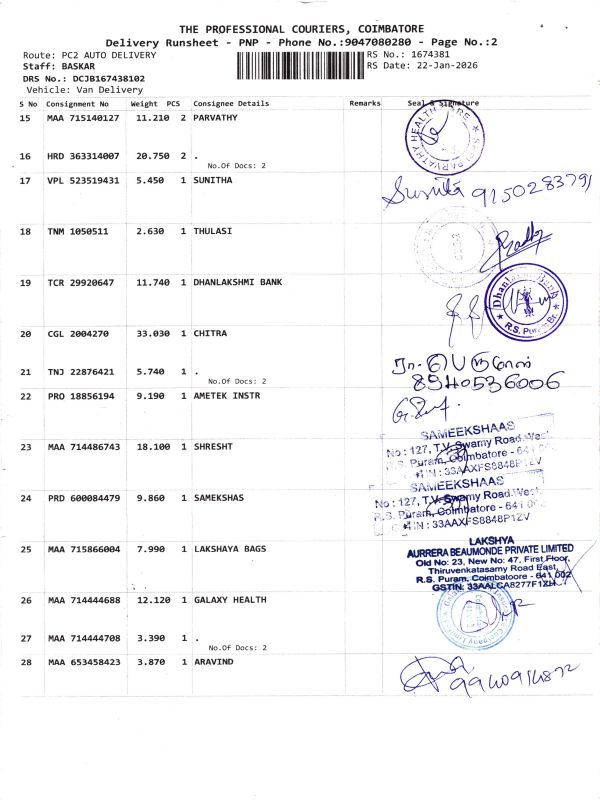 THE PROFESSIONAL COURIERS, COIMBATORE
Delivery Runsheet - PNP - Phone No.:9047080280 - Page No.:2
Route: PC2 AUTO DELIVERY
RS No.: 1674381
Staff: BASKAR
RS Date: 22-Jan-2026
DRS No.: DCJB167438102
Vehicle: Van Delivery
S No Consignment No Weight PCS Consignee Details Remarks Seal & Signature
15 MAA 715140127 11.210 2 PARVATHY
16 HRD 363314007 20.750 2 .
No.Of Docs: 2
17 VPL 523519431 5.450 1 SUNITHA
Sunitha 9150283791
18 TNM 1050511 2.630 1 THULASI
19 TCR 29920647 11.740 1 DHANLAKSHMI BANK
R.S. Puram Br.
20 CGL 2004270 33.030 1 CHITRA
21 TNJ 22876421 5.740 1 .
No.Of Docs: 2
8940536006
22 PRO 18856194 9.190 1 AMETEK INSTR
23 MAA 714486743 18.100 1 SHRESHT
SAMEEKSHAAS
No : 127, T.V. Swamy Road West,
R.S. Puram, Coimbatore - 641
24 PRD 600084479 9.860 1 SAMEKSHAS
SAMEEKSHAAS
No : 127, T.V. Swamy Road West,
R.S. Puram, Coimbatore - 641
: 33AAXFS8848P1ZV
25 MAA 715866004 7.990 1 LAKSHAYA BAGS
LAKSHYA
AURRERA BEAUMONDE PRIVATE LIMITED
Old No: 23, New No: 47, First Floor,
Thiruvenkatasamy Road East,
R.S. Puram, Coimbatoore - 641 002
GSTIN: 33AALCA8277F1ZH
26 MAA 714444688 12.120 1 GALAXY HEALTH
27 MAA 714444708 3.390 1 .
No.Of Docs: 2
28 MAA 653458423 3.870 1 ARAVIND